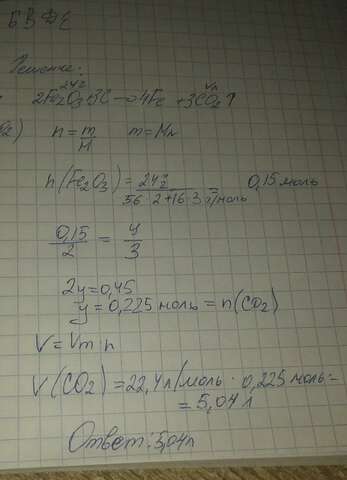 Б В Д Е
Решение:
24г Vл
2Fe2O3+3C→4Fe +3CO2↑
n=m/M m=Mn
n(Fe2O3)=24г/56·2+16·3 г/моль 0,15 моль
0,15/2 = y/3
2y=0,45
y=0,225 моль = n(CO2)
V=Vm n
V(CO2)=22,4л/моль · 0,225 моль=
=5,04л
Ответ: 5,04л